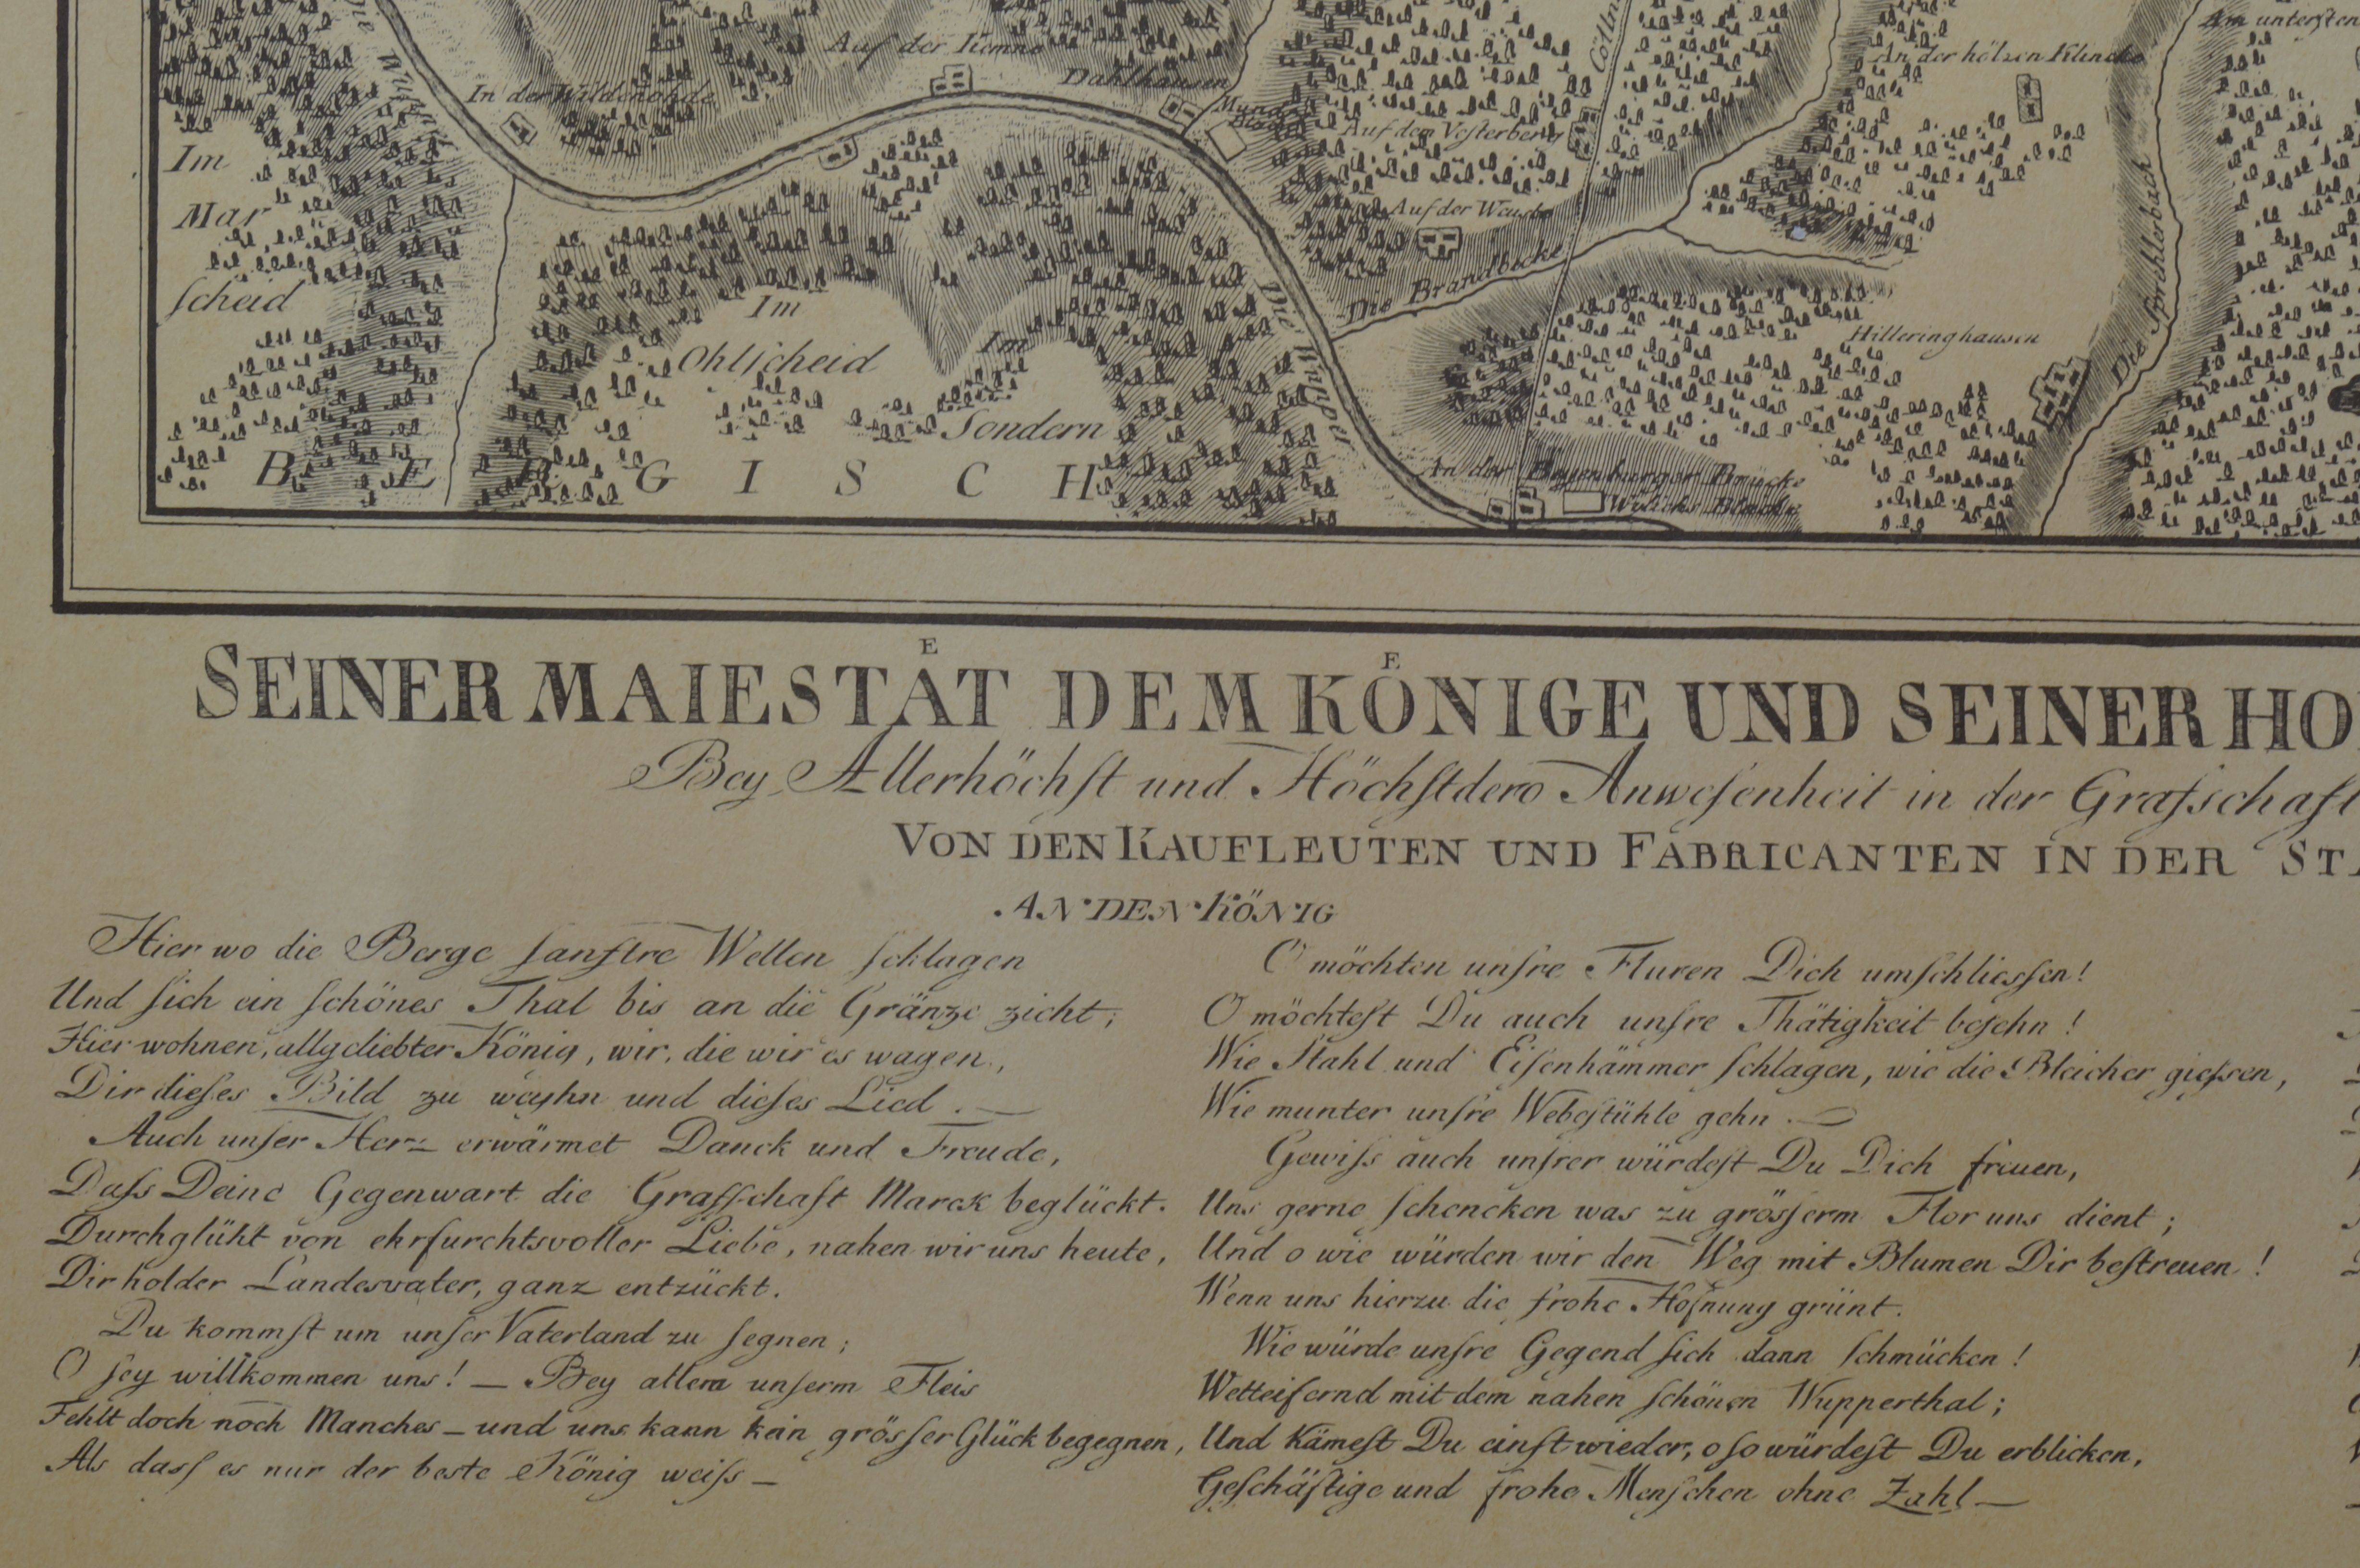 Auf der Kemna
Am untersten
Cölln
An der hölsen Klincke
Dahlhausen
In der Wildenohde
Die Wupper
Auf dem Vesterberg
Im
Mar
ſcheid
Auf der Weuste
Die Brandbecke
Die Sprehlerbach
Im
Ohlſcheid
Im
Sondern
Die Wupper
Hilleringhausen
An der Beyenburger Brücke
Wylichs Bleiche
BERGISCH
SEINER MAIESTAͤT DEM KOͤNIGE UND SEINER HO
Bey Allerhöchſt und Höchſtdero Anweſenheit in der Grafschaft
VON DEN KAUFLEUTEN UND FABRICANTEN IN DER STA
AN DEN KÖNIG
Hier wo die Berge ſanftre Wellen ſchlagen
Und ſich ein ſchönes Thal bis an die Gränze zieht;
Hier wohnen, allgeliebter König, wir, die wir es wagen,
Dir dieſes Bild zu weyhn und dieſes Lied. —
Auch unſer Herz erwärmet Danck und Freude,
Daſs Deine Gegenwart die Graffſchaft Marck beglückt.
Durchglüht von ehrfurchtsvoller Liebe, nahen wir uns heute,
Dir holder Landesvater, ganz entzückt.
Du kommſt um unſer Vaterland zu ſegnen;
O ſey willkommen uns! — Bey allem unſerm Fleis
Fehlt doch noch Manches — und uns kann kein gröſſer Glück begegnen,
Als daſſ es nur der beste König weiſs —
O möchten unſre Fluren Dich umſchlieſſen!
O möchteſt Du auch unſre Thätigkeit beſehn!
Wie Stahl und Eiſenhämmer ſchlagen, wie die Bleicher gieſsen,
Wie munter unſre Webeſtühle gehn. —
Gewiſs auch unſrer würdeſt Du Dich freuen,
Uns gerne ſchencken was zu gröſſerm Flor uns dient;
Und o wie würden wir den Weg mit Blumen Dir beſtreuen!
Wenn uns hierzu die frohe Hofnung grünt.
Wie würde unſre Gegend ſich dann ſchmücken!
Wetteifernd mit dem nahen ſchönen Wupperthal;
Und Kämeſt Du einſt wieder, o ſo würdeſt Du erblicken,
Geſchäftige und frohe Menſchen ohne Zahl —